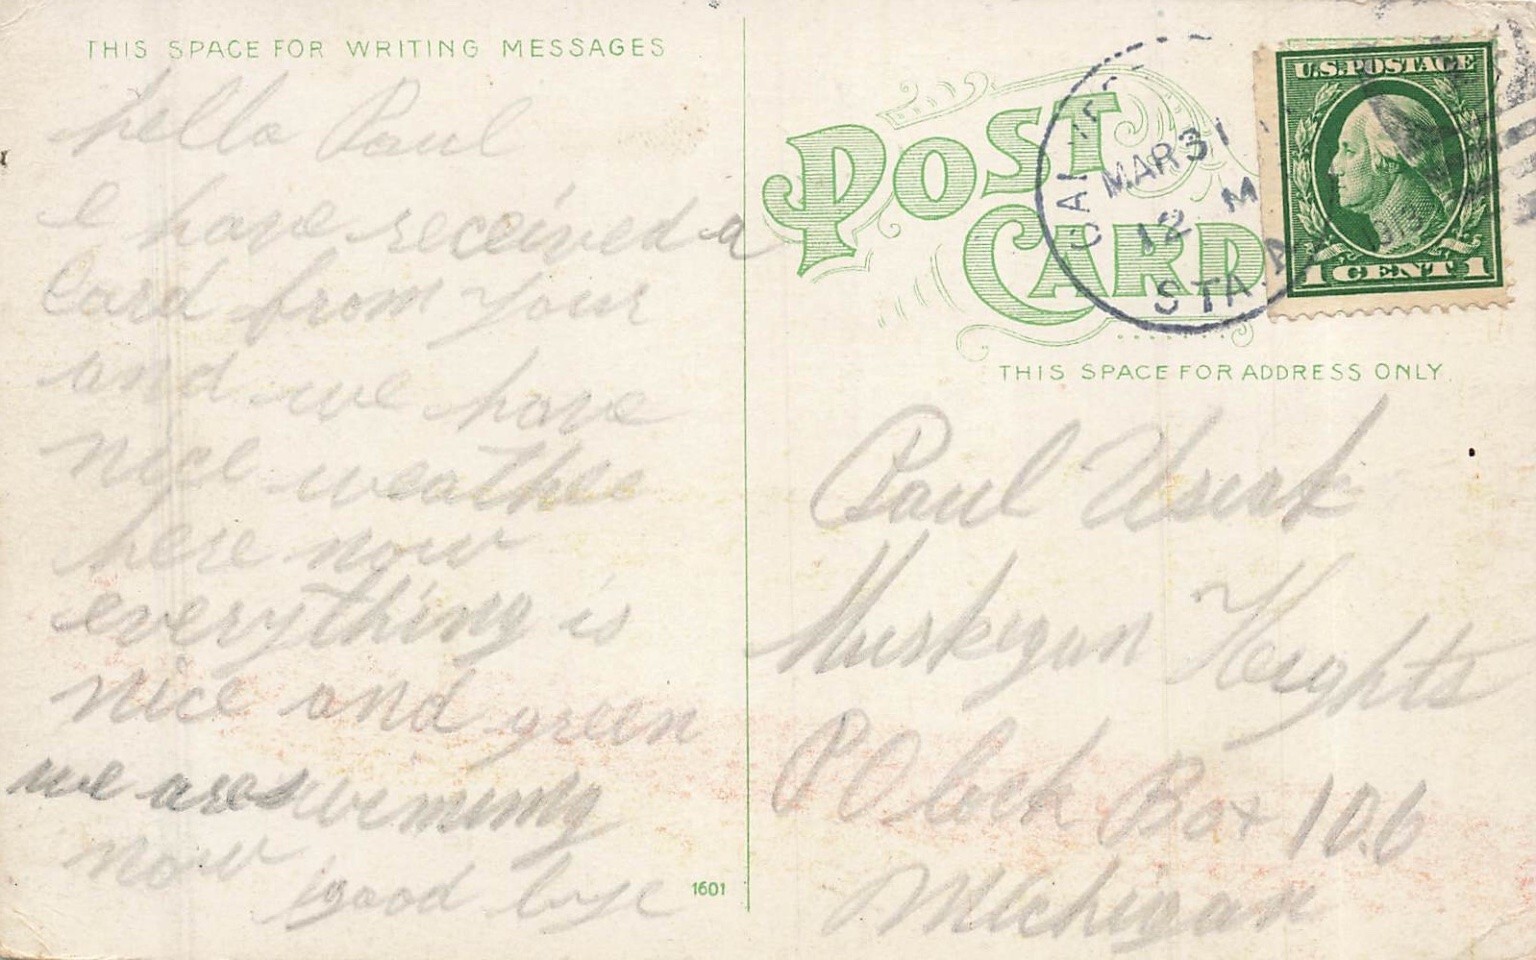 THIS SPACE FOR WRITING MESSAGES
hello Paul
I have received a
Card from Your
and we have
nice weather
here now
everything is
nice and green
we are swiming
now good bye
1601
POST
CARD
MAR 31
12 M
STA. A
U.S. POSTAGE
1 CENT 1
THIS SPACE FOR ADDRESS ONLY.
Paul
Muskegan Heights
P O lock Box 106
Michigan